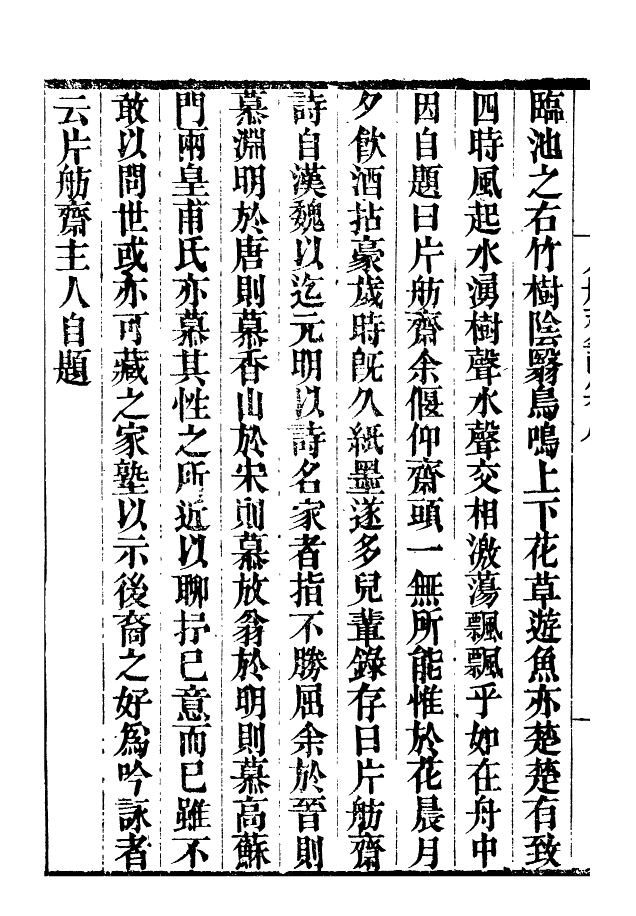 臨池之右竹樹陰翳鳥鳴上下花草遊魚亦楚楚有致
四時風起水湧樹聲水聲交相激蕩飄飄乎如在舟中
因自題曰片舫齋余偃仰齋頭一無所能惟於花晨月
夕飲酒拈豪歲時旣久紙墨遂多兒輩錄存曰片舫齋
詩自漢魏以迄元明以詩名家者指不勝屈余於晉則
慕淵明於唐則慕香山於宋則慕放翁於明則慕高蘇
門兩皇甫氏亦慕其性之所近以聊抒已意而已雖不
敢以問世或亦可藏之家塾以示後裔之好為吟詠者
云片舫齋主人自題